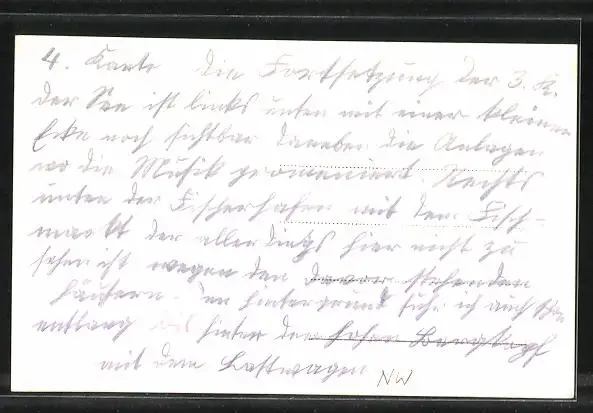 4. Karte Die Fortsetzung der 3. K.
der See ist links unten mit einer kleinen
Ecke noch sichtbar daneben die Anlagen
wo die Musik promeniert. Rechts
unten der Fischerhafen mit dem Fisch-
markt der allerdings hier nicht zu
sehen ist wegen den davor stehenden
Häusern. Im Hintergrund fuhr ich auch
entlang bis hinter den hohen Bergkopf
mit dem Lastwagen NW